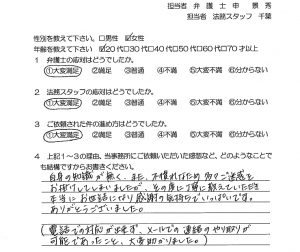 担当者 弁護士 申 景秀
担当者 法務スタッフ 千葉
性別を教えて下さい。 □男性 ☑女性
年齢を教えて下さい ☑20代□30代□40代□50代□60代□70才以上
1 弁護士の応対はどうでしたか。
①大変満足 ②満足 ③普通 ④不満 ⑤大変不満 ⑥分からない
2 法務スタッフの応対はどうでしたか。
①大変満足 ②満足 ③普通 ④不満 ⑤大変不満 ⑥分からない
3 ご依頼された件の進め方はどうでしたか。
①大変満足 ②満足 ③普通 ④不満 ⑤大変不満 ⑥分からない
4 上記1～3の理由、当事務所にご依頼いただいた感想など、どのようなことで
も結構ですからお書きください。
自身の知識が無く、また、不慣れなため多々ご迷惑を
お掛けしてしまいましたが、その度に丁寧に教えていただき
本当にお世話になり感謝の気持ちでいっぱいです。
ありがとうございました。
(電話での対応が出来ず、メールでの連絡のやり取りが
可能であったこと、大変助かりました。)